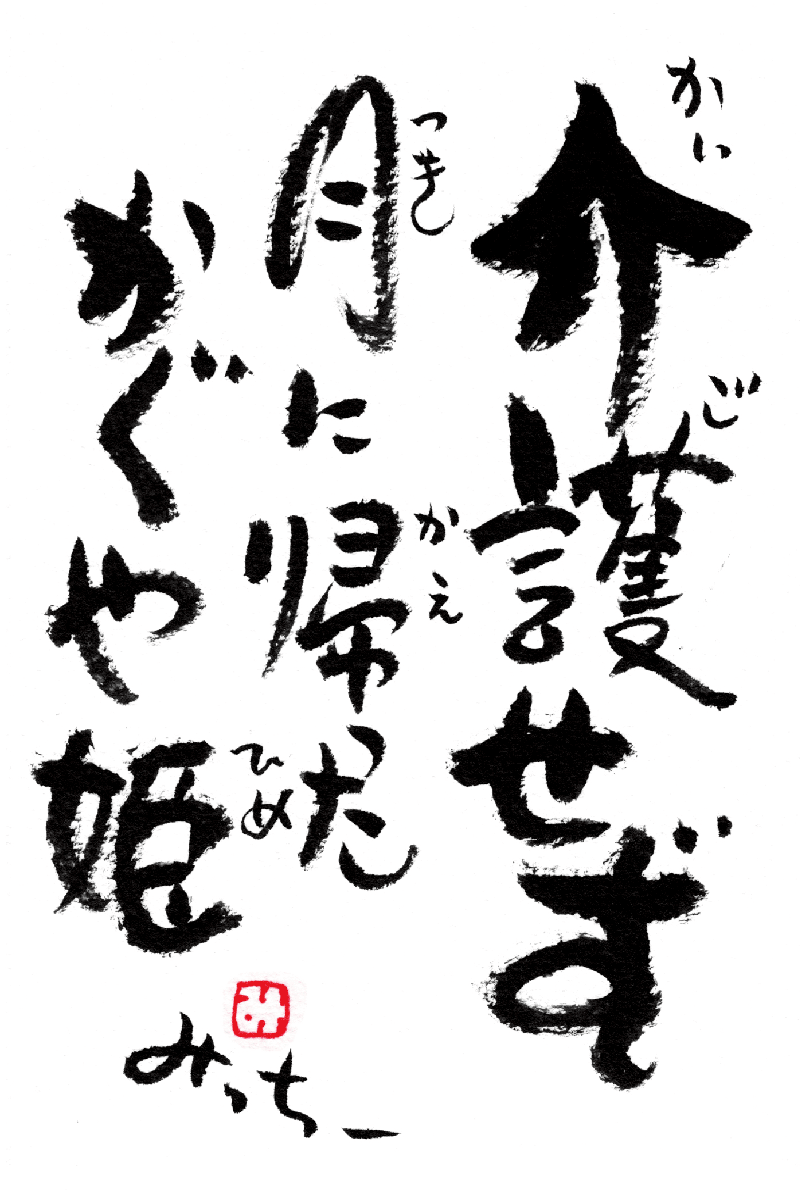 介護せず
かい
ご
月に帰った
つき
かえ
かぐや姫
ひめ
み
みっちー